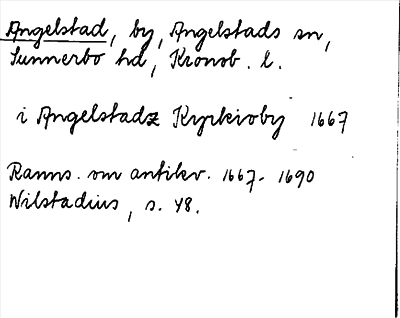 Angelstad, by, Angelstads sn,
Sunnerbo hd, Kronob. l.
i Angelstadz Kyrkioby 1667
Ranns. om antikv. 1667-1690
Wilstadius, s. 48.